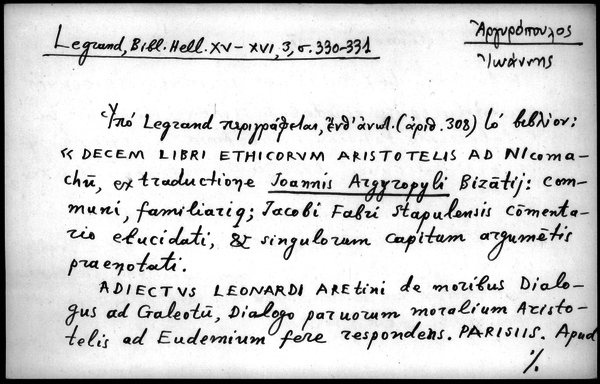 Legrand, Bibl. Hell. XV–XVI, 3, σ. 330-331
Ἀργυρόπουλος
Ἰωάννης
Ὑπό Legrand περιγράφεται, ἔνθ' ἀνωτ. (ἀριθ. 308) τό βιβλίον:
« DECEM LIBRI ETHICORVM ARISTOTELIS AD NIcoma-
chū, ex traductione Joannis Argyropyli Bizātij: com-
muni, familiariq; Jacobi Fabri Stapulensis cōmenta-
rio elucidati, & singulorum capitum argumētis
praenotati.
ADIECTVS LEONARDI ARETini de moribus Dialo-
gus ad Galeotū, Dialogo paruorum moralium Aristo-
telis ad Eudemium fere respondens. PARISIIS. Apud
%.